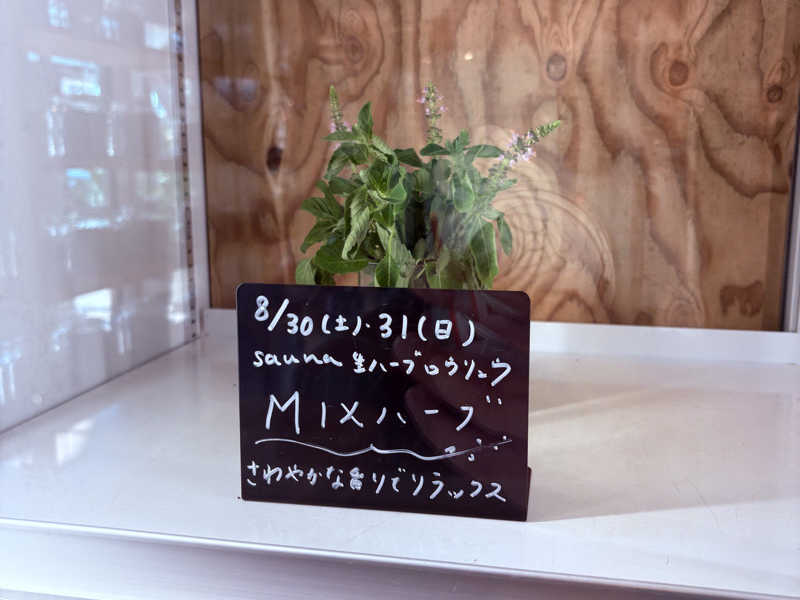 8/30(土)・31(日)
sauna 生ハーブロウリュウ
MIXハーブ
さわやかな香りでリラックス